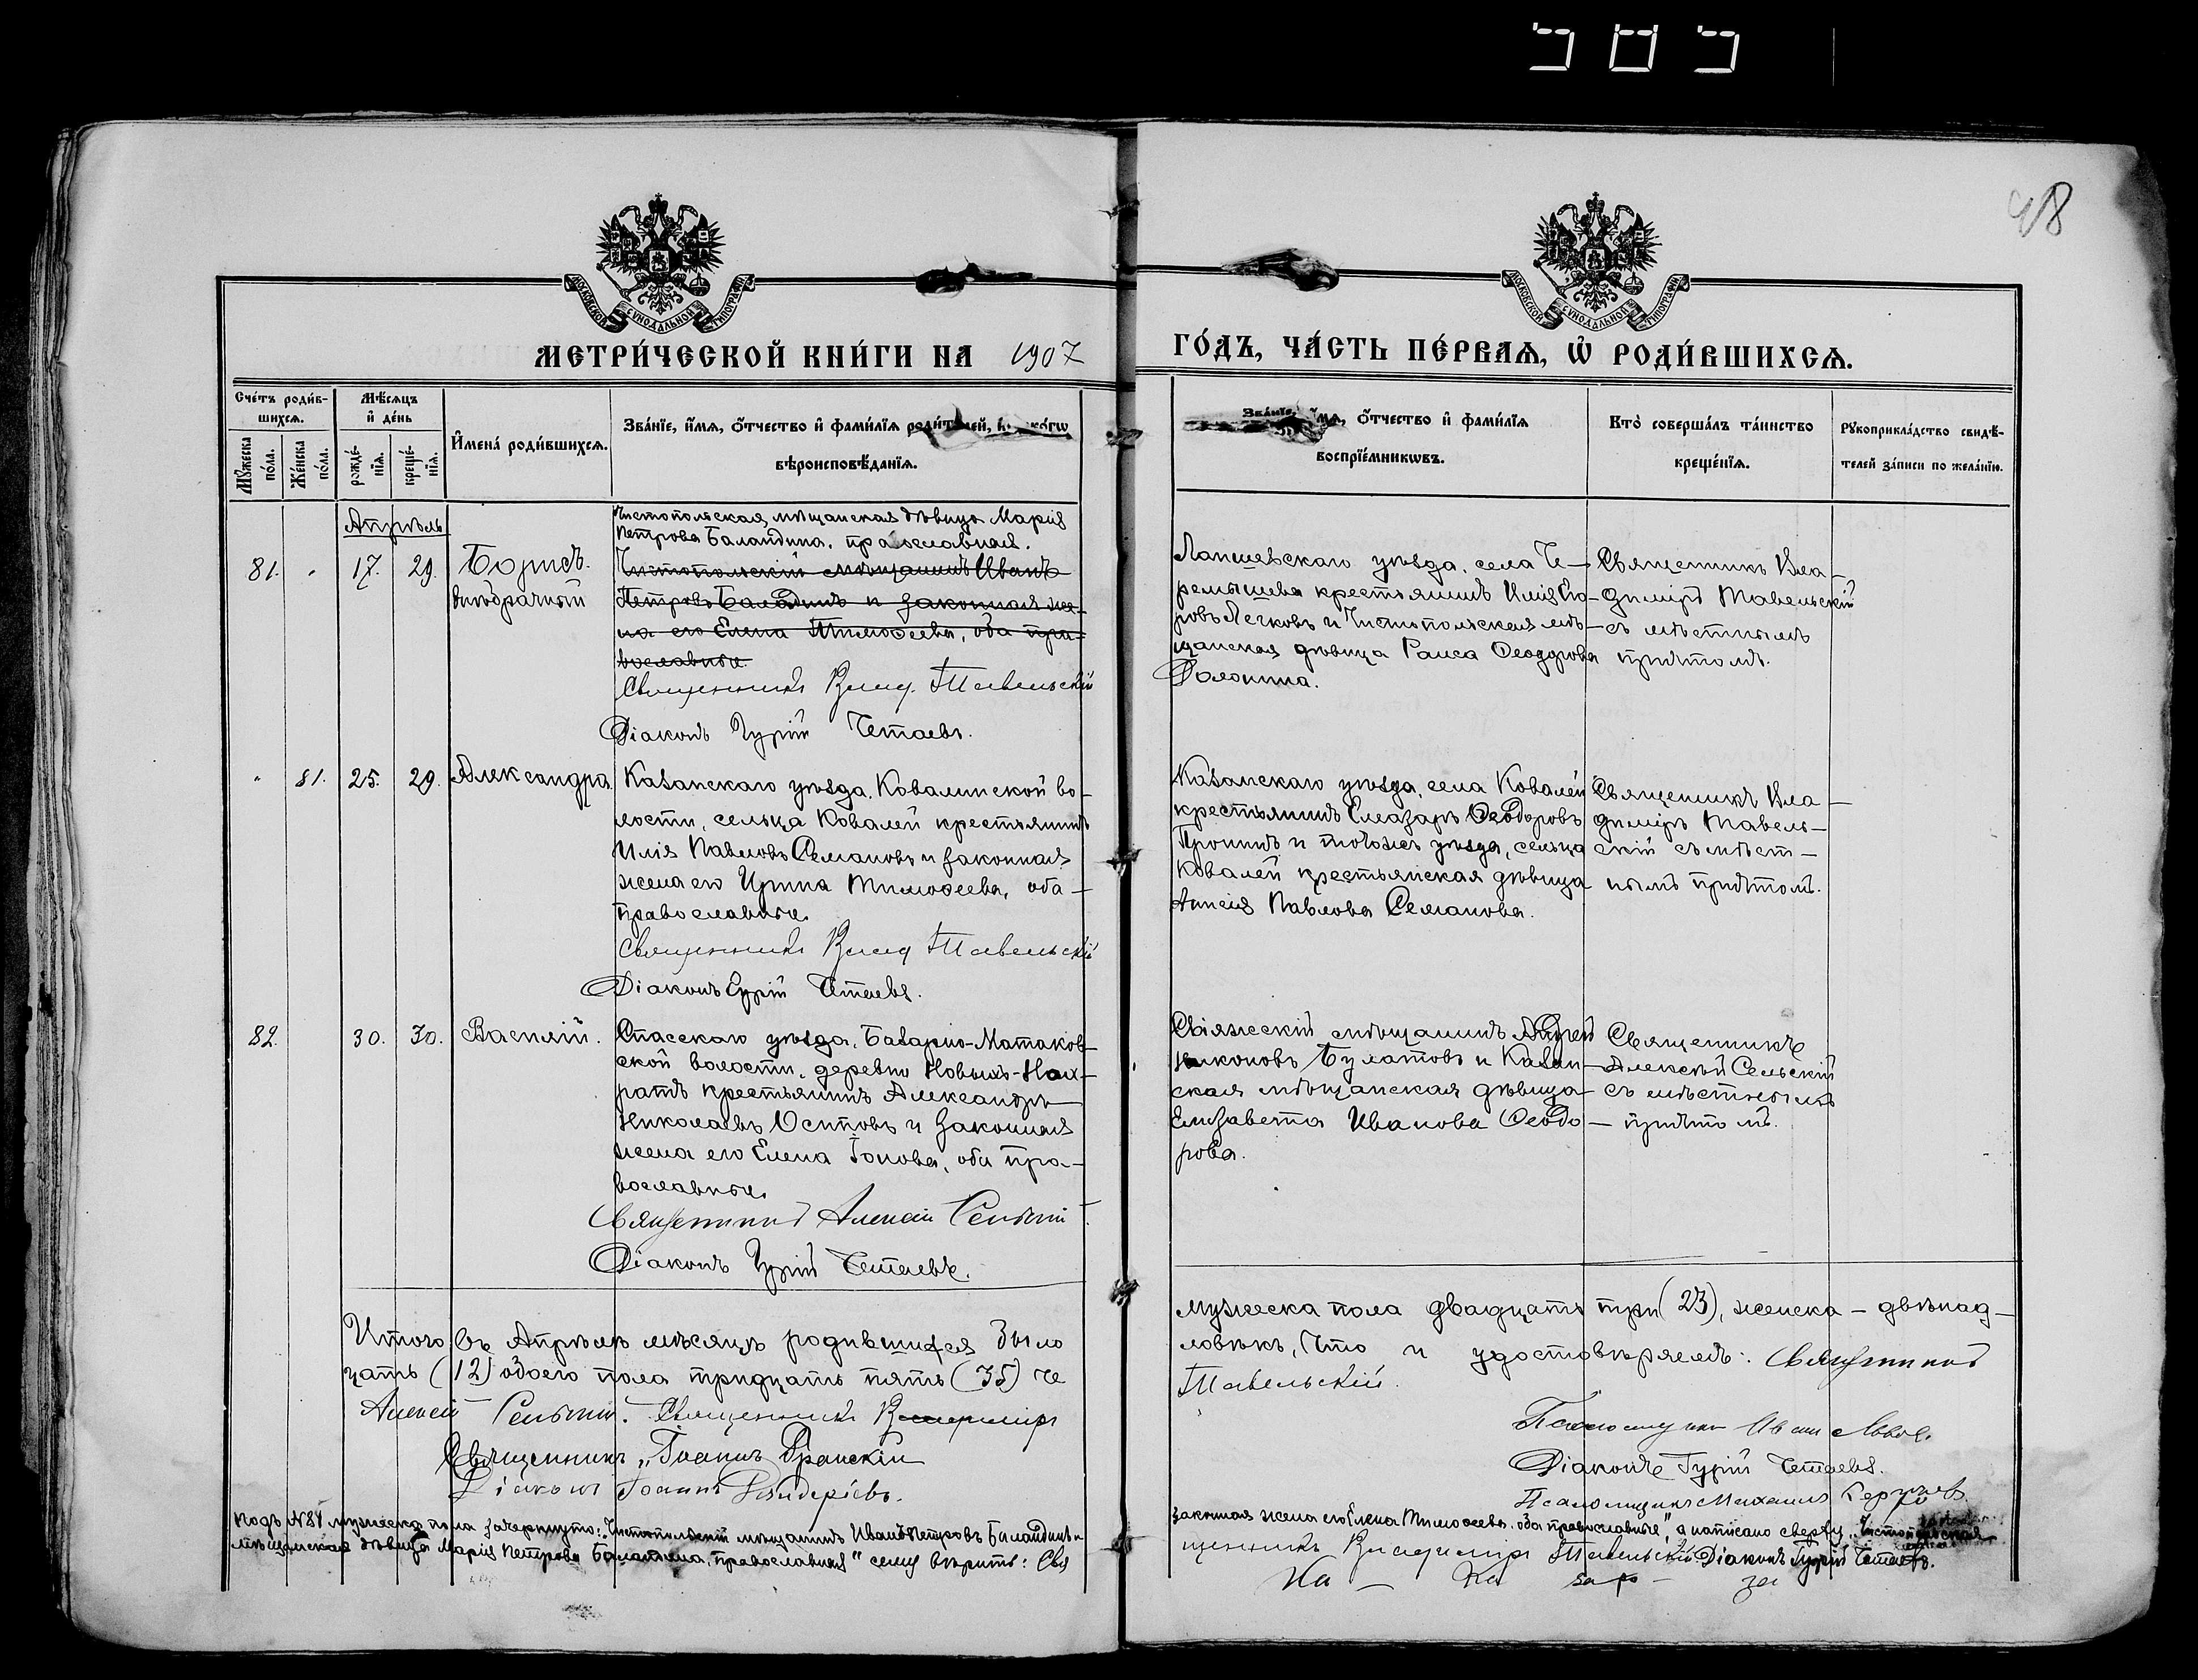 48
МОСКОВСКОЙ СѴНОДАЛЬНОЙ ТИПОГРАФІИ
МОСКОВСКОЙ СѴНОДАЛЬНОЙ ТИПОГРАФІИ
МЕТРИ́ЧЕСКОЙ КНИ́ГИ НА 1907
ГО́ДЪ, ЧА́СТЬ ПЕ́РВАѦ, Ѡ РОДИ́ВШИХСѦ.
Сче́тъ роди́в-
шихсѧ.
Мꙋ́жеска по́ла.
Же́нска по́ла.
Мѣ́сѧцъ
и҆ де́нь
рожде́-нїѧ.
креще́-нїѧ.
И҆мена̀ роди́вшихсѧ.
Зва́нїе, и҆́мѧ, ѻ҆́тчество и҆ фами́лїѧ роди́телей,
вѣроисповѣ́данїѧ.
Зва́нїе, и҆́мѧ, ѻ҆́тчество и҆ фами́лїѧ
воспрїе́мникѡвъ.
Кто̀ соверша́лъ та́инство
креще́нїѧ.
Рꙋкоприкла́дство свидѣ́-
телей за́писи по жела́нїю.
Апрѣль
81. " 17. 29. Борисъ.
внѣбрачный
Чистопольская мѣщанская дѣвица Марія
Петрова Баландина, православная.
Чистопольскій мѣщанинъ Иванъ
Петровъ Баландинъ и законная же-
на его Елена Тимоѳеева, оба пра-
вославные.
Священникъ Влад. Тавельскій
Діаконъ Гурій Четаевъ.
Лаишевскаго уѣзда, села Че-
ремышева крестьянинъ Илія
Легковъ и Чистопольская мѣ-
щанская дѣвица Раиса Ѳеодорова
Священникъ Вла-
димиръ Тавельскій
съ мѣстнымъ
причтомъ.
" 81. 25. 29. Александра
Казанскаго уѣзда, Ковалинской во-
лости, сельца Ковалей крестьянинъ
Илія Павловъ Семановъ и законная
жена его Ирина Тимоѳеева, оба
православные.
Священникъ Влад Тавельскій
Діаконъ Гурій Четаевъ.
Казанскаго уѣзда, села Ковалей
крестьянинъ Елеазаръ Ѳеодоровъ
Пронинъ и тогожъ уѣзда, сельца
Ковалей крестьянская дѣвица
Анисія Павлова Семанова.
Священникъ Вла-
димиръ Тавель-
скій съ мѣст-
нымъ причтомъ.
82. 30. 30. Василій.
Спасскаго уѣзда, Базарно-Матаков-
ской волости, деревни Новыхъ-Нох-
ратъ крестьянинъ Александръ
Николаевъ Осиповъ и законная
жена его Елена Іонова, оба пра-
вославные.
Священникъ Алексій Сельскій
Діаконъ Гурій Четаевъ.
Свіяжскій мѣщанинъ Андрей
Никоновъ Булатовъ и Казан-
ская мѣщанская дѣвица
Елизавета Иванова Ѳеодо-
рова.
Священникъ
Алексѣй Сельскій
съ мѣстнымъ
причтомъ.
Итого въ Апрѣлѣ мѣсяцѣ родившихся было
мужеска пола двадцать три (23), женска - двѣнад-
цать (12) обоего пола тридцать пять (35) че
ловѣкъ, что и удостовѣряемъ: Священникъ
Алексій Сельскій. Священникъ Владимиръ
Тавельскій.
Священникъ Іоаннъ
Діаконъ Іоаннъ
Псаломщикъ Иванъ
Діаконъ Гурій Четаевъ.
Псаломщикъ Михаилъ
Подъ №81 мужеска пола зачеркнуто: "Чистопольскій мѣщанинъ Иванъ Петровъ Баландинъ и
законная жена его Елена Тимоѳеева, оба православные" а написано сверху "Чистопольская
мѣщанская дѣвица Марія Петрова Баландина, православная" сему вѣрить: Свя
щенникъ Владимиръ Тавельскій Діаконъ Гурій Четаевъ.